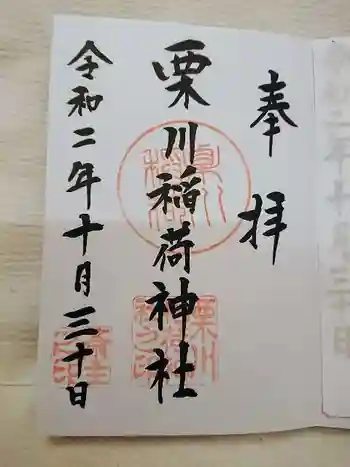 奉拝
栗川稲荷神社
令和二年十月三十日